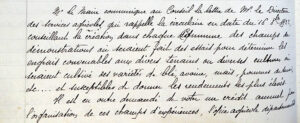 Le Maire communique au Conseil la lettre de Mr le Directeur
des Services agricoles qui rappelle la circulaire en date du 16 7bre
conseillant la création dans chaque commune des champs de
démonstrations où seraient fait des essais pour déterminer les
engrais convenables aux divers terrains ou diverses cultures
seraient cultivé ses variétés de blé, avoine, maïs, pommes de terre,
etc... et susceptibles de donner les rendements les plus élevés
Il est en outre demandé de voter un crédit annuel pour
l'organisation de ces champs d'expériences, l'office agricole départemental